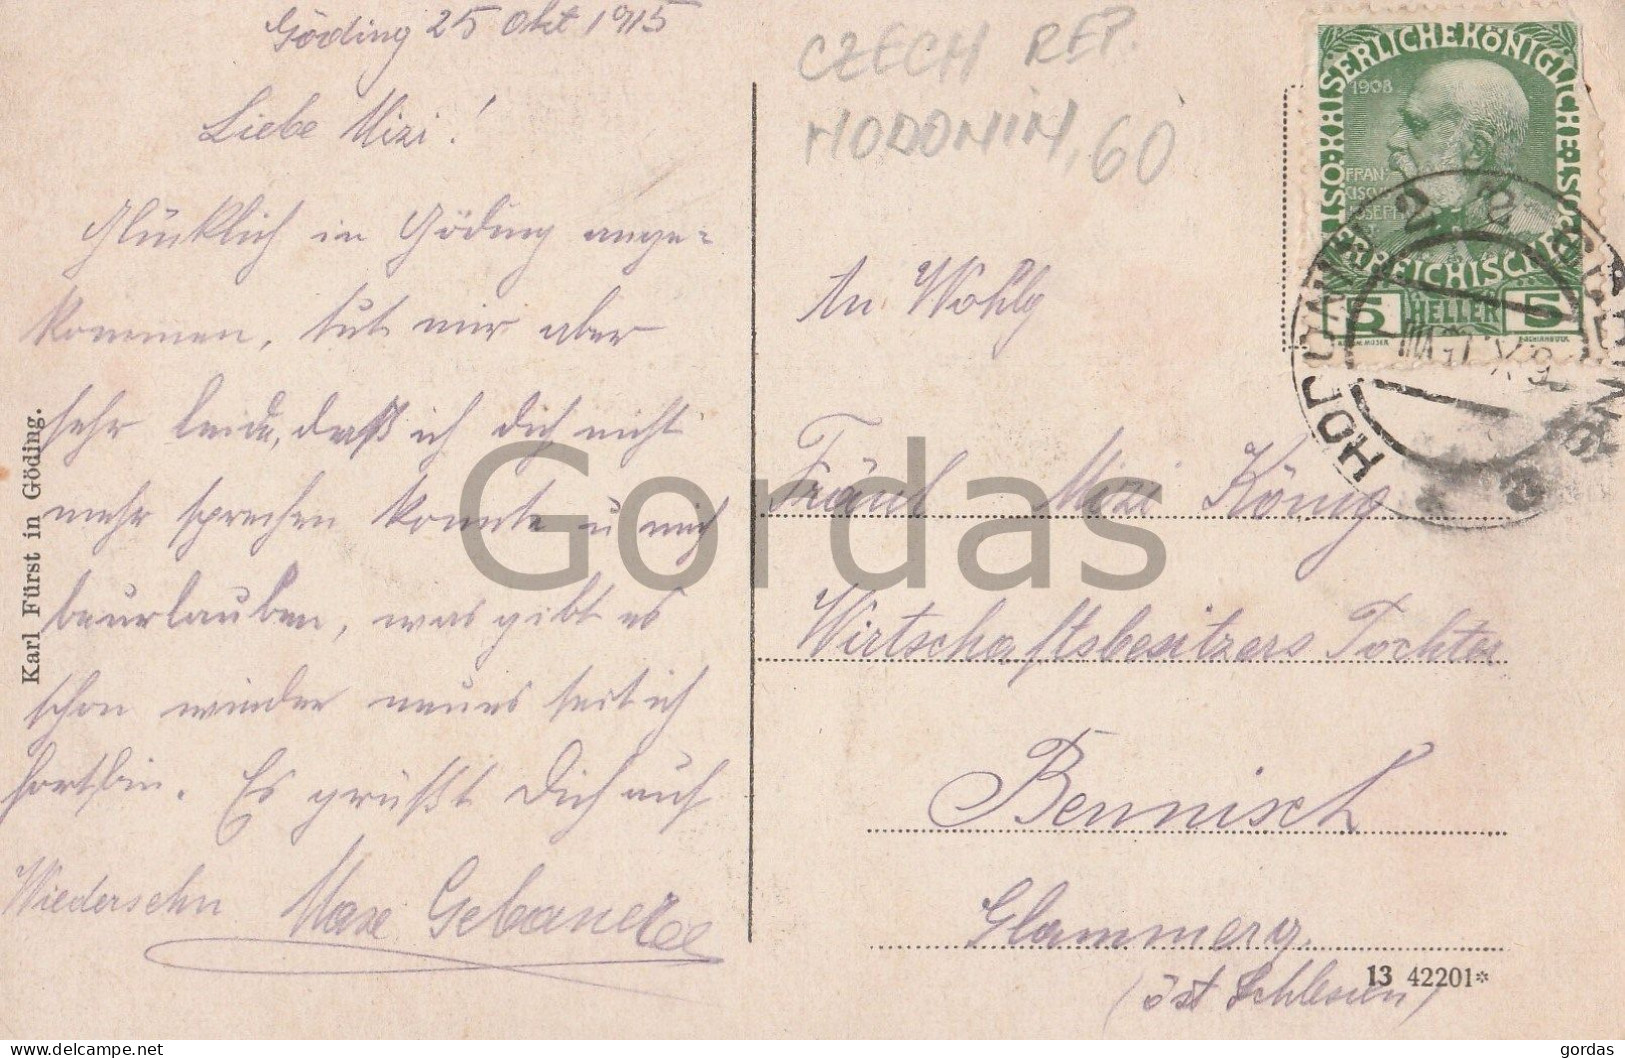 Göding 25 Okt 1915
Liebe Mizi!
Glücklich in Göding ange=
kommen, tut mir aber
sehr leide, daß ich dich nicht
mehr sprechen konnte u mich
beurlauben, was gibt es
schon wieder neues seit ich
fort bin. Es grüßt Dich auf
Wiedersehn Max
Karl Fürst in Göding.
CZECH REP.
HODONIN, 60
An Wohlg
Fräul Mizi König
Wirtschaftsbesitzers Tochter
Bennisch
(öst Schlesien)
13 42201*
K.K. ÖSTERREICHISCHE
1908
FRAN-
CISCVS
IOSEFI
5 HELLER 5
HODONÍN
GÖDING
2 2
Gordas
gordas